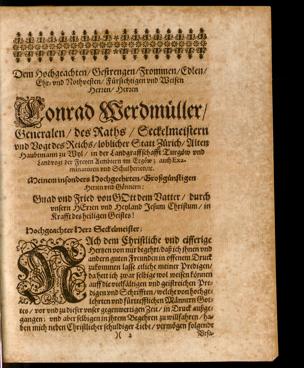 Dem Hochgeachten/ Gestrengen/ Frommen/ Edlen/
Ehr- und Nothvesten/ Fürsichtigen und Weisen
Herren/ Herren
Conrad Werdmüller/
Generalen/ des Raths/ Seckelmeistern
und Vogt des Reichs/ loblicher Statt Zürich/ Alten
Haubtmann zu Wyl/ in der Landgraffschafft Turgöw und
Landvogt der Freyen Aembteren im Ergöw; auch Exa-
minatoren und Schulherren/ꝛc.
Meinen insonders Hochgeehrten/ Großgünstigen
Herren und Gönnern:
Gnad und Fried von GOtt dem Vatter/ durch
unsern HErren und Heyland Jesum Christum/ in
Krafft des heiligen Geistes!
Hochgeachter Herr Seckelmeister;
NAch dem Christliche und eifferige
Hertzen von mir begehrt/ daß ich ihnen und
andern guten Freunden in offenem Druck
zukommen lasse etliche meiner Predigen/
da hett ich zwar selbige wol weisen können
auff die vielfältigen und geistreichen Pre-
digen und Schrifften/ welche von hochge-
lehrten und fürtrefflichen Männern Got-
tes/ vor und zu dieser unser gegenwertigen Zeit/ in Druck außge-
gangen; und aber selbigen in ihrem Begehren zu willfahren/ ha-
ben mich neben Christlicher schuldiger Liebe/ vermögen folgende
)( 2
Ursa-